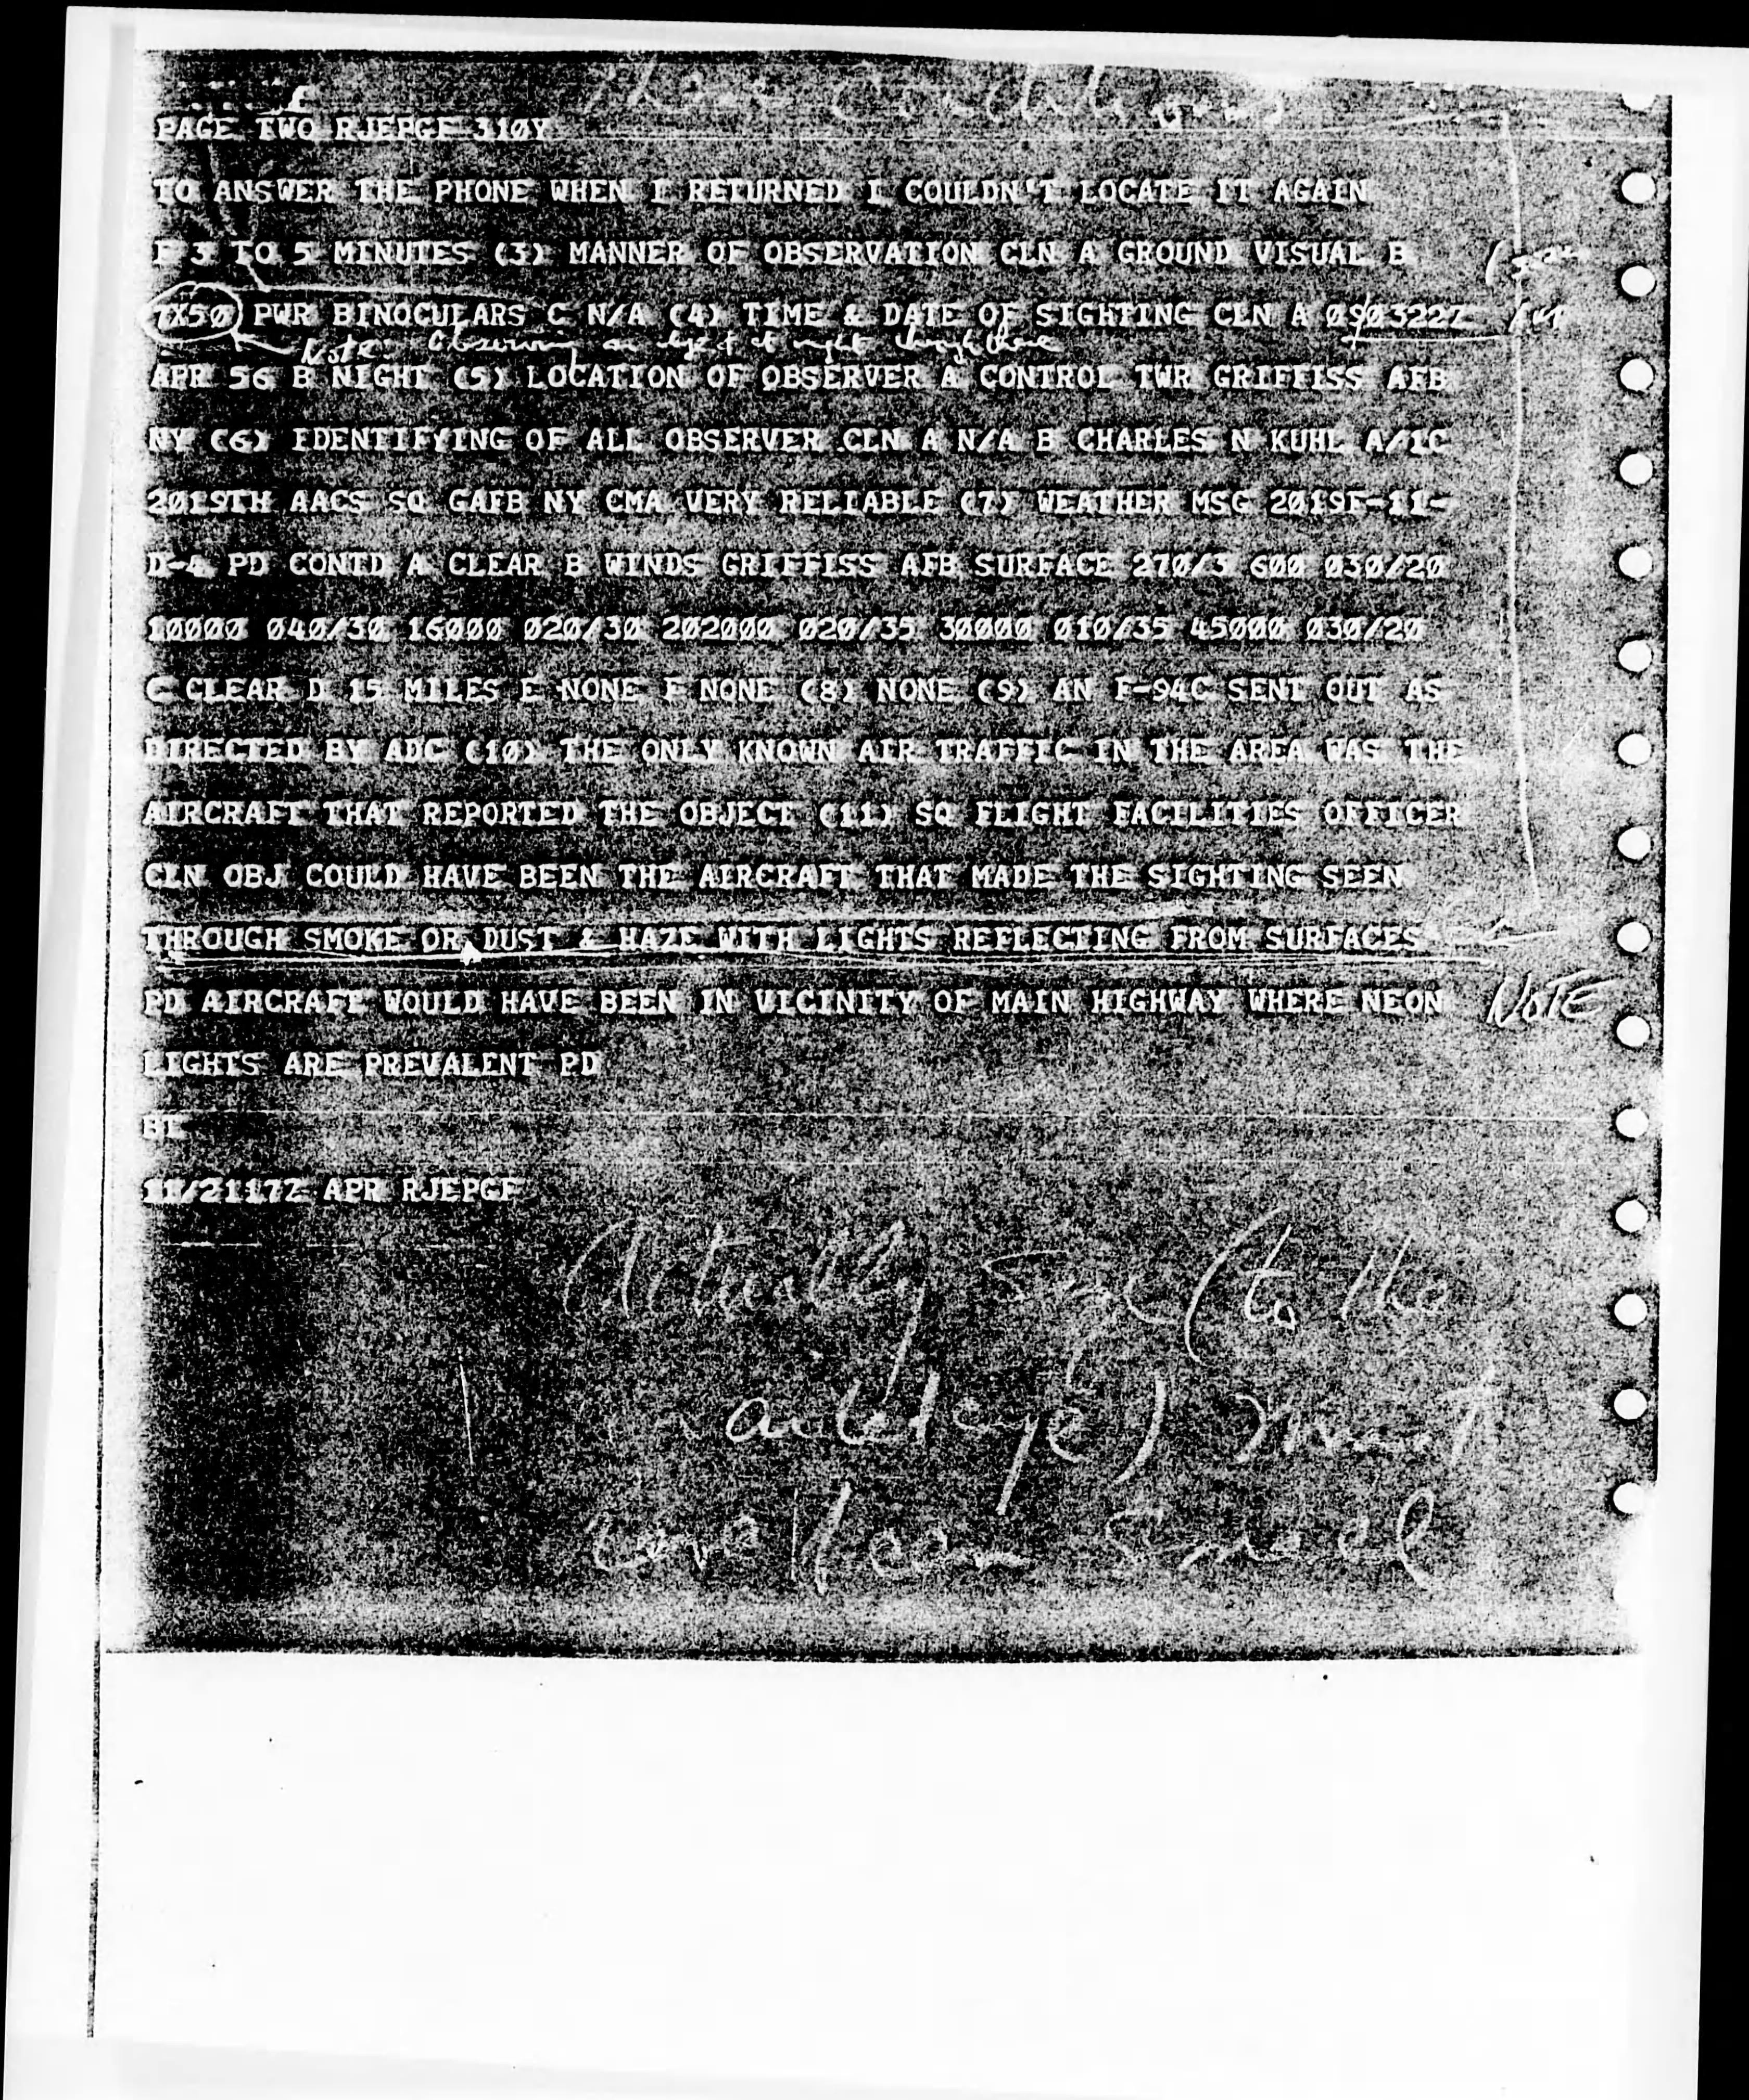 these Conditions
PAGE TWO RJEPGF 310Y
TO ANSWER THE PHONE WHEN I RETURNED I COULDN'T LOCATE IT AGAIN
F 3 TO 5 MINUTES (3) MANNER OF OBSERVATION CLN A GROUND VISUAL B
7X50 PWR BINOCULARS C N/A (4) TIME & DATE OF SIGHTING CLN A 090322Z
Note Observing an object at night through these
APR 56 B NIGHT (5) LOCATION OF OBSERVER A CONTROL TWR GRIFFISS AFB
NY (6) IDENTIFYING OF ALL OBSERVER CLN A N/A B CHARLES N KUHL A/1C
2019TH AACS SQ GAFB NY CMA VERY RELIABLE (7) WEATHER MSG 2019F-11-
D-4 PD CONTD A CLEAR B WINDS GRIFFISS AFB SURFACE 270/3 600 030/20
10000 040/30 16000 020/30 202000 020/35 30000 010/35 45000 030/20
C CLEAR D 15 MILES E NONE F NONE (8) NONE (9) AN F-94C SENT OUT AS
DIRECTED BY ADC (10) THE ONLY KNOWN AIR TRAFFIC IN THE AREA WAS THE
AIRCRAFT THAT REPORTED THE OBJECT (11) SQ FLIGHT FACILITIES OFFICER
CLN OBJ COULD HAVE BEEN THE AIRCRAFT THAT MADE THE SIGHTING SEEN
THROUGH SMOKE OR DUST & HAZE WITH LIGHTS REFLECTING FROM SURFACES
PD AIRCRAFT WOULD HAVE BEEN IN VICINITY OF MAIN HIGHWAY WHERE NEON NOTE
LIGHTS ARE PREVALENT PD
BT
11/2117Z APR RJEPGF
Actually size (to the
naked eye) must
have been small